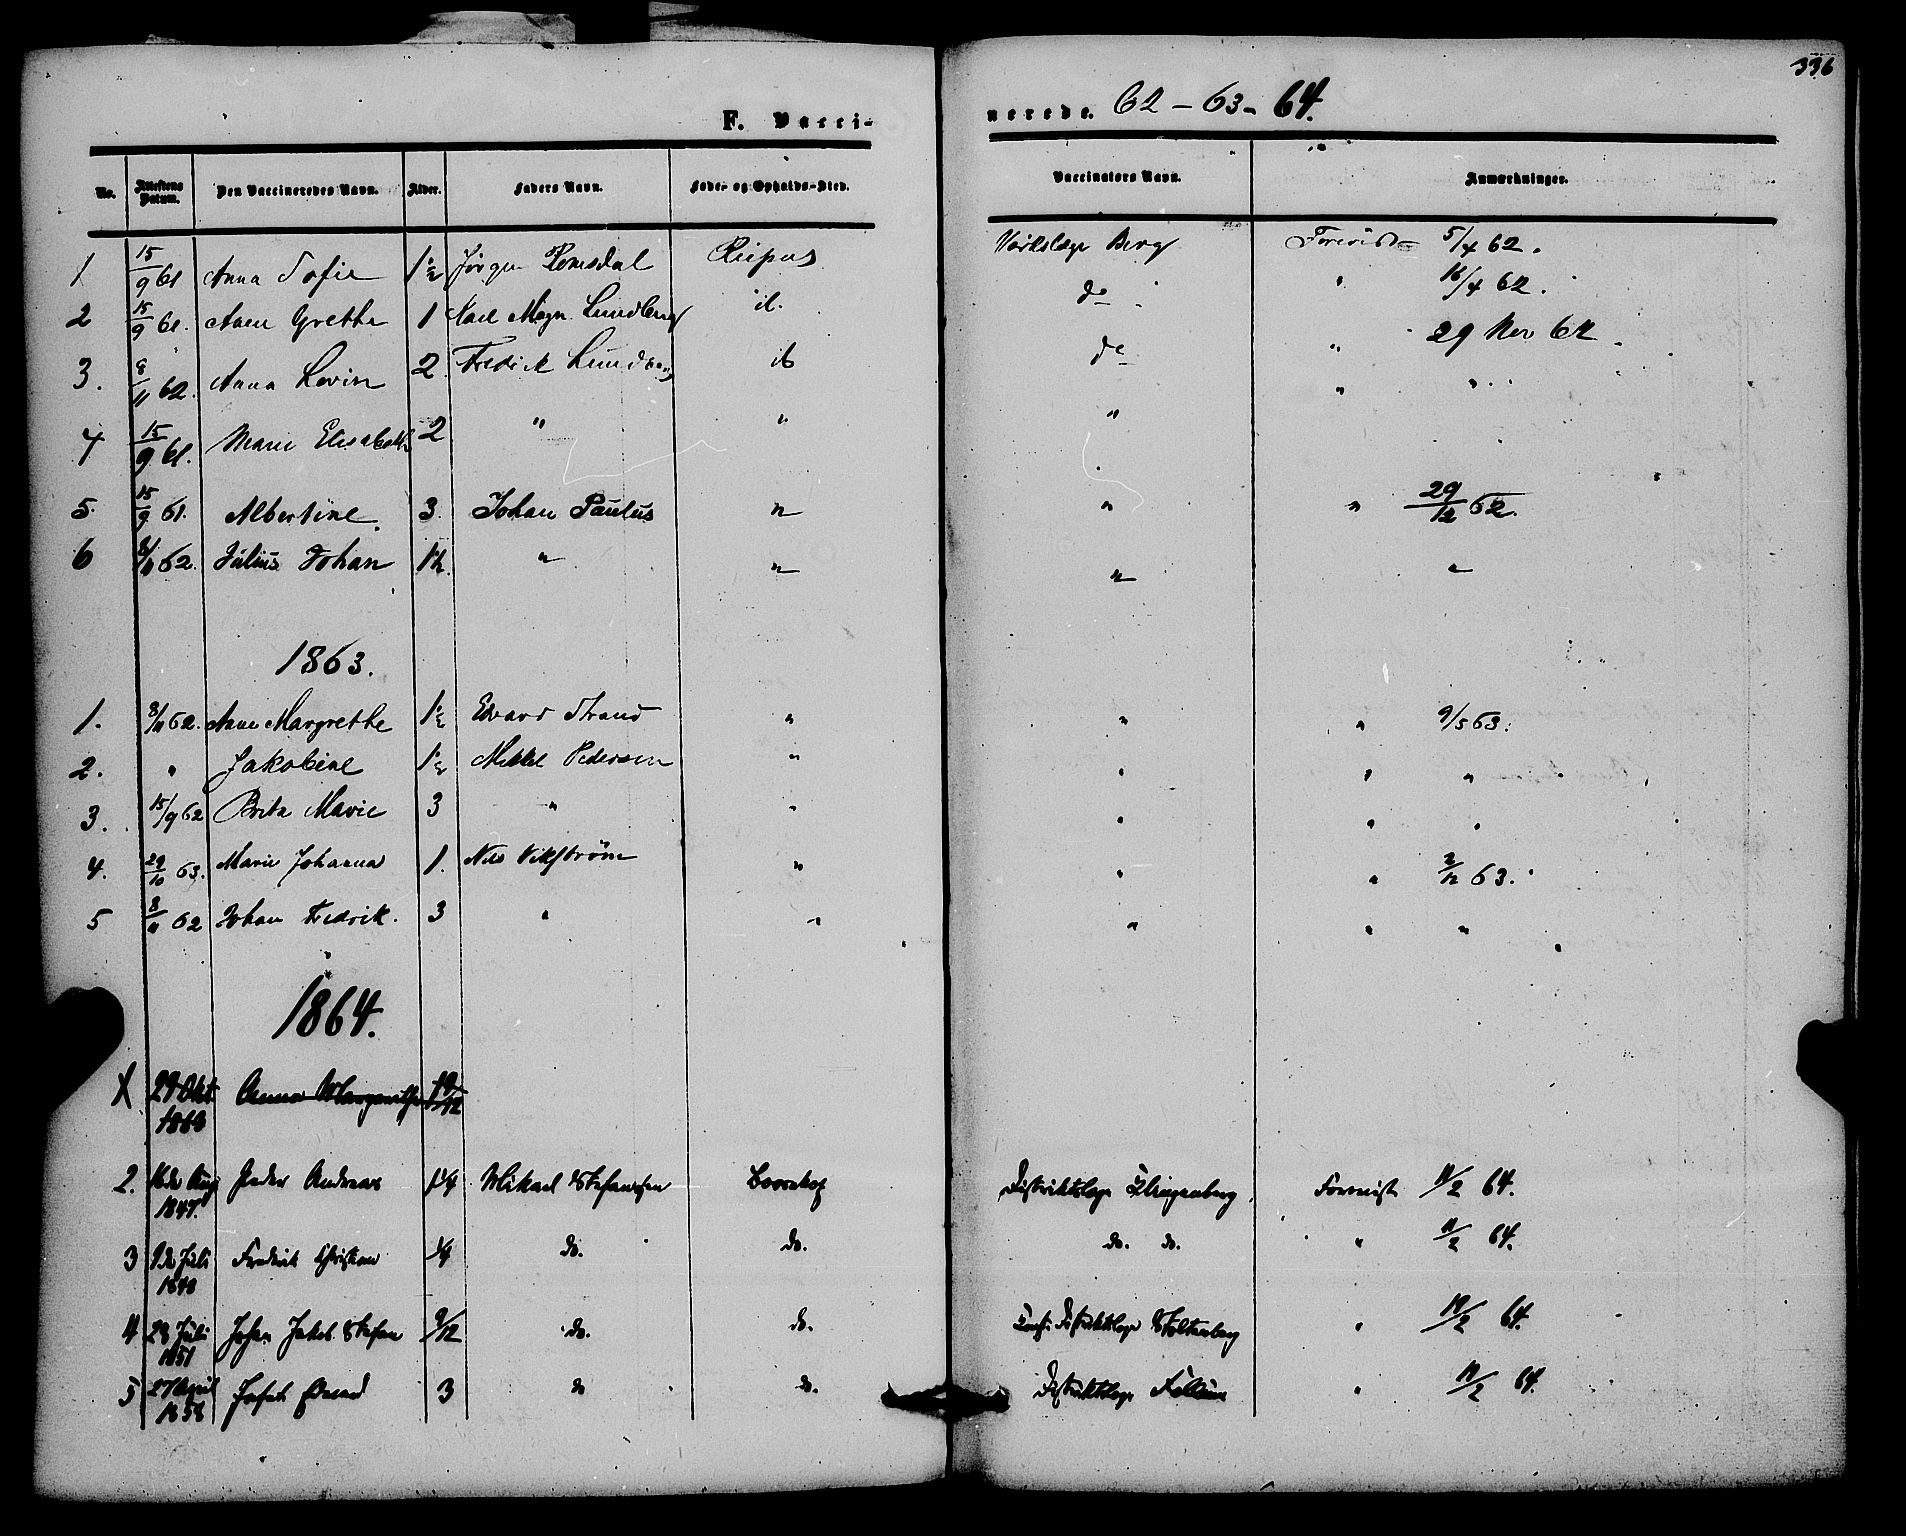 336
F. Vacci-
nerede. 62 - 63 - 64.
No. Attestens Datum. Den Vaccineredes Navn. Alder. Faders Navn. Føde- og Opholds-Sted. Vaccinators Navn. Anmærkninger.
1 15/9 61 Anna Sofie 1 1/2 Jørgen Romsdal Riipas Værkslæge Berg Forevist 5/4 62.
2 15/9 61. Anne Grethe 1 Karl Magn. Lundberg ib. do 16/4 62.
3. 8/11 62. Anna Lovise 2 Fredrik Lundberg ib do " 29 Nov 62
4 15/9 61. Marie Elisabeth 2 " " " " "
5. 15/9 61. Albertine 3 Johan Paulus " " " 29/12 62.
6 8/11 62. Julius Johan 1 1/2 " " " "
1863.
1. 8/11 62. Anne Margrethe 1 1/2 Edvard Strand " " " 9/5 63.
2. " Jakobine 1 1/2 Mikkel Pedersen " " " "
3. 15/9 62 Brita Marie 3 " " " " "
4. 29/10 63. Marie Johanna 1. Nils Vikstrøm " " " 2/12 63.
5 8/11 62 Johan Fredrik. 3 " " " " "
1864.
1 29 Okt 1863 Anna Margarethe
2. 16de Aug 1847. Peder Andreas 1/4 Mikael Stefansen Bossekop Distriktslæge Klingenberg Forevist 11/2 64.
3 9de Juli 1848 Fredrik Christian 1/4 do. do. do. do. " 11/2 64.
4 28 Juli 1851 Johan Jakob Stefan 9/12 do. do. Distriktslæge Stoltenberg " 19/2 64.
5 27 April 1858 Edvard 3 do do. Distriktslæge " 11/2 64.